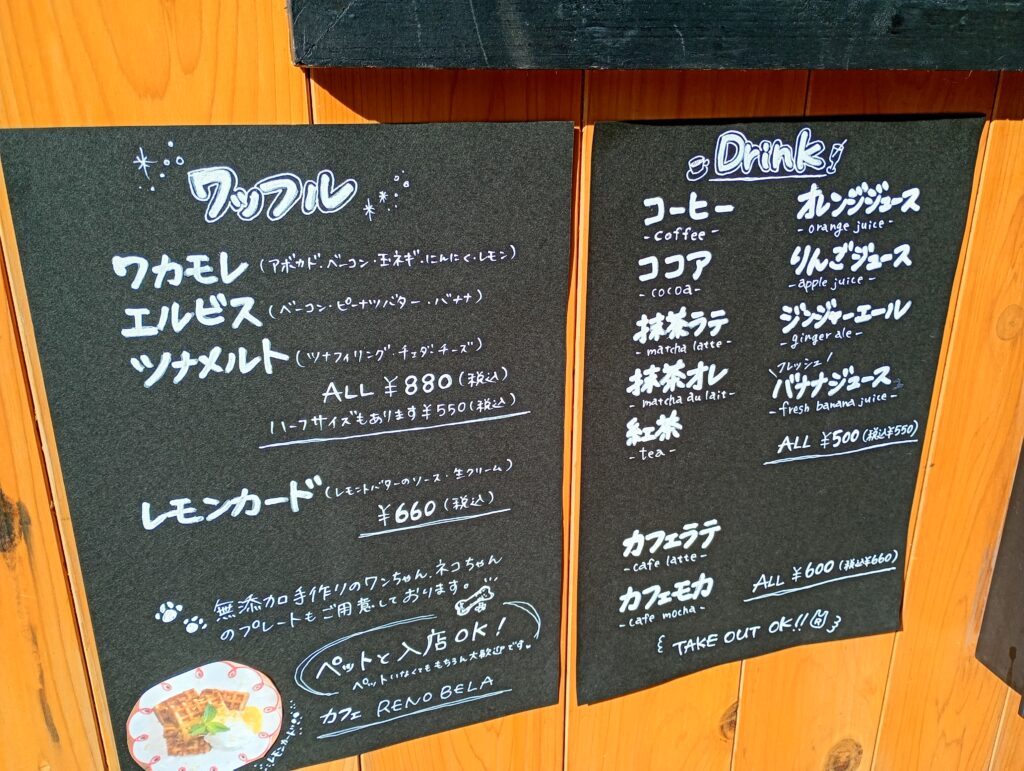 ワッフル
ワカモレ（アボカド・ベーコン・玉ネギ・にんにく・レモン）
エルビス（ベーコン・ピーナツバター・バナナ）
ツナメルト（ツナフィリング・チェダーチーズ）
ALL ¥880（税込）
ハーフサイズもあります¥550（税込）
レモンカード（レモントバターのソース・生クリーム）
¥660（税込）
無添加手作りのワンちゃん、ネコちゃん
のプレートもご用意しております。
ペットと入店OK！
ペットいなくてももちろん大歓迎です。
カフェ RENO BELA
レモンカード
Drink
コーヒー
- coffee -
ココア
- cocoa -
抹茶ラテ
- matcha latte -
抹茶オレ
- matcha du lait -
紅茶
- tea -
オレンジジュース
- orange juice -
りんごジュース
- apple juice -
ジンジャーエール
- ginger ale -
フレッシュ
バナナジュース
- fresh banana juice -
ALL ¥500（税込¥550）
カフェラテ
- cafe latte -
カフェモカ
- cafe mocha -
ALL ¥600（税込¥660）
TAKE OUT OK!!